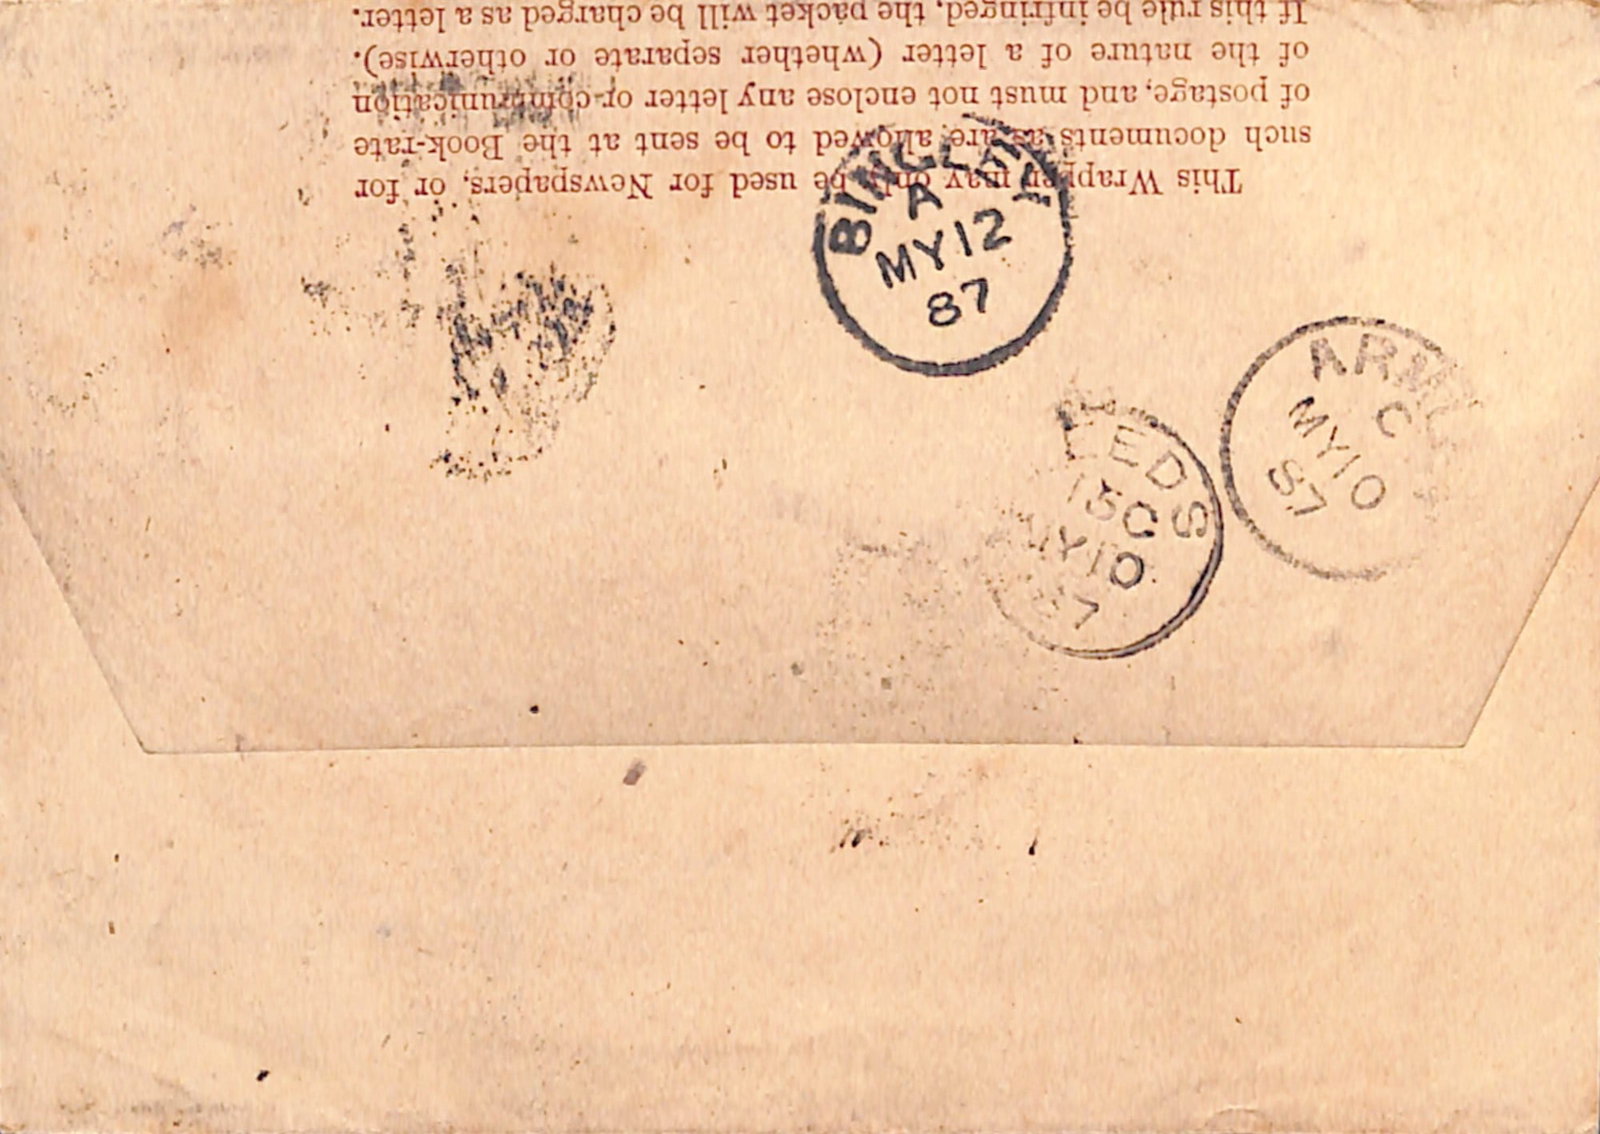 This Wrapper may only be used for Newspapers, or for
such documents as are allowed to be sent at the Book-rate
of postage, and must not enclose any letter or communication
of the nature of a letter (whether separate or otherwise).
If this rule be infringed, the packet will be charged as a letter.
BINGLEY
A
MY 12
87
LEEDS
15C
MY 10
87
C
MY 10
87